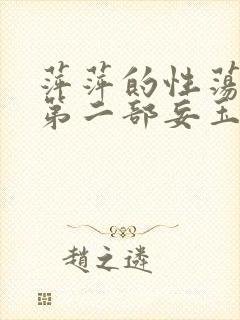 萍萍的性蕩
第二部妄玉
趙之遴